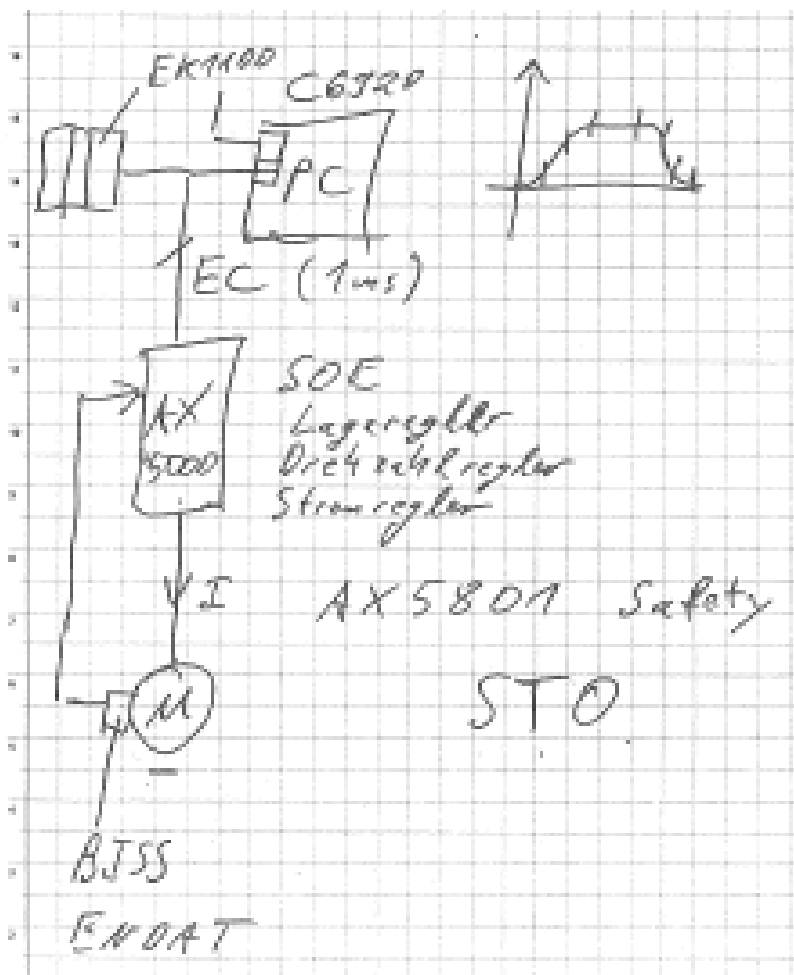 EK1100
C6920
PC
EC (1ms)
AX
5000
SOE
Lageregler
Drehzahlregler
Stromregler
I
AX5801 Safety
M
STO
BISS
ENDAT